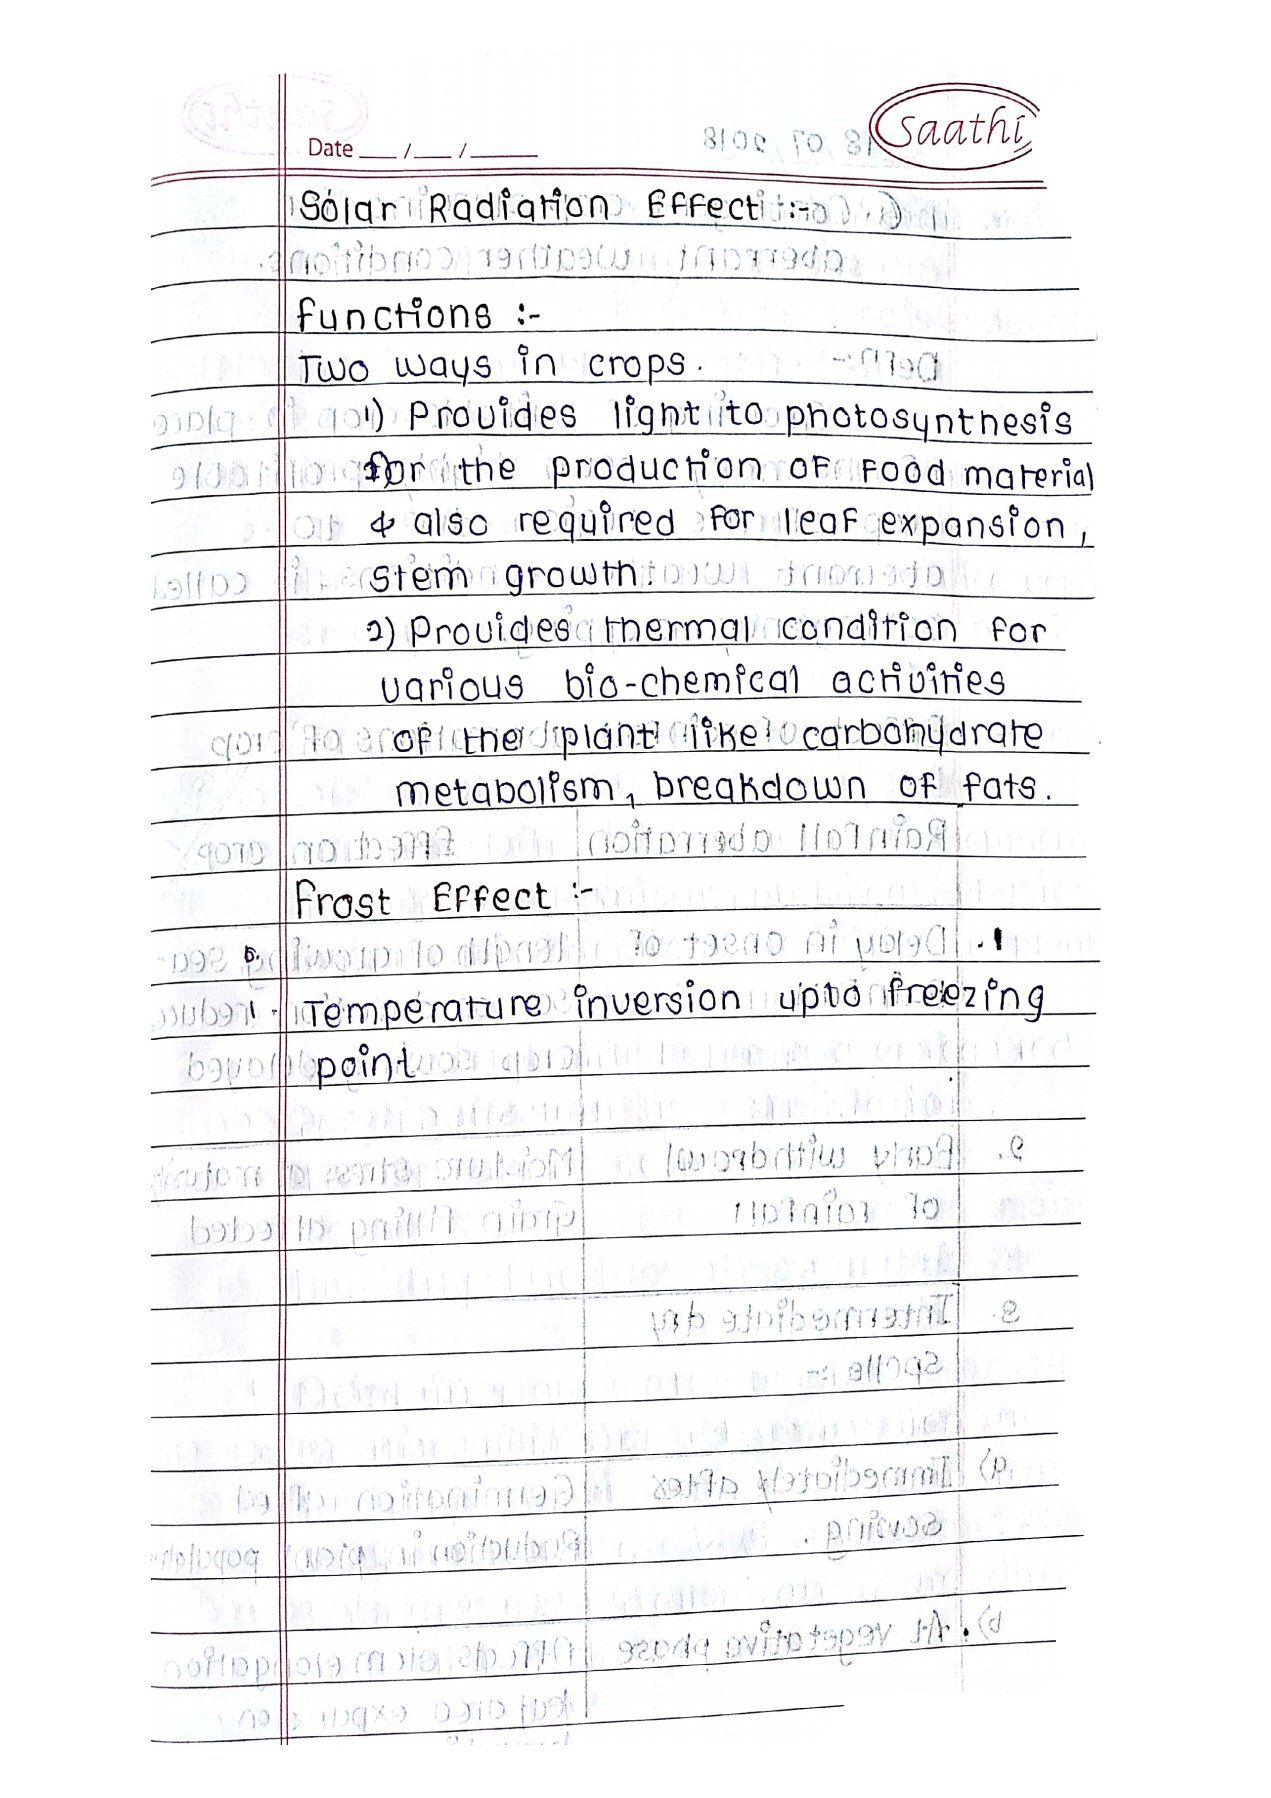 saathi
Date ___/___/_____
Solar Radiation Effect :-
Functions :-
Two ways in crops.
1) Provides light to photosynthesis
for the production of food material
& also required for leaf expansion,
stem growth.
2) Provides thermal condition for
various bio-chemical activities
of the plant like carbohydrate
metabolism, breakdown of fats.
Frost Effect :-
1. Temperature inversion upto freezing
point